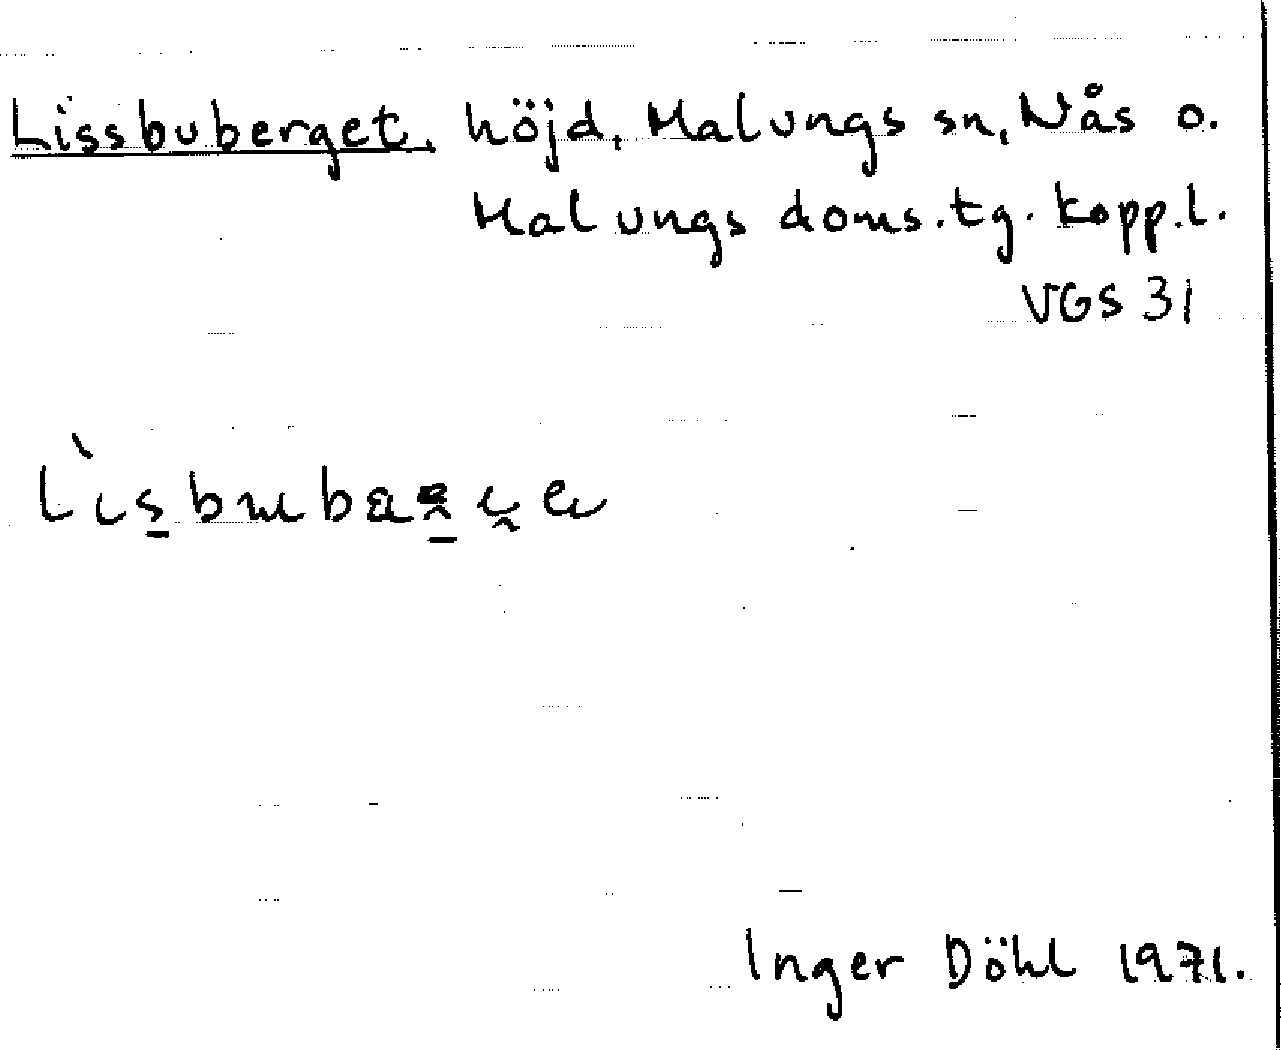 Lissbuberget. höjd, Malungs sn, Nås o.
Malungs doms.tg. Kopp.l.
VGS 31
Inger Döhl 1971.